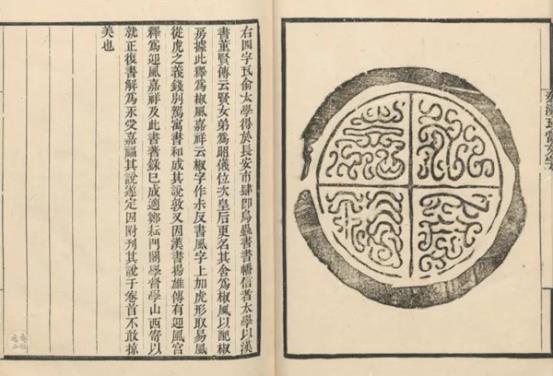 右四字瓦俞太學得於長安市肆卽鳥蟲書書幡信者太學以漢
書董賢傳云賢女弟爲昭儀位次皇后更名其舍爲椒風以配椒
房據此釋爲椒風嘉祥云椒字作尗反書風字上加虎形取易風
從虎之義錢別駕寓書和成其說敦又因漢書揚雄傳有迎風宮
釋爲迎風嘉祥及此書著錄已成適鄭耘門閣學督學山西寄以
就正復書解爲永受嘉福其說遂定因附列其說于卷首不敢掠
美也